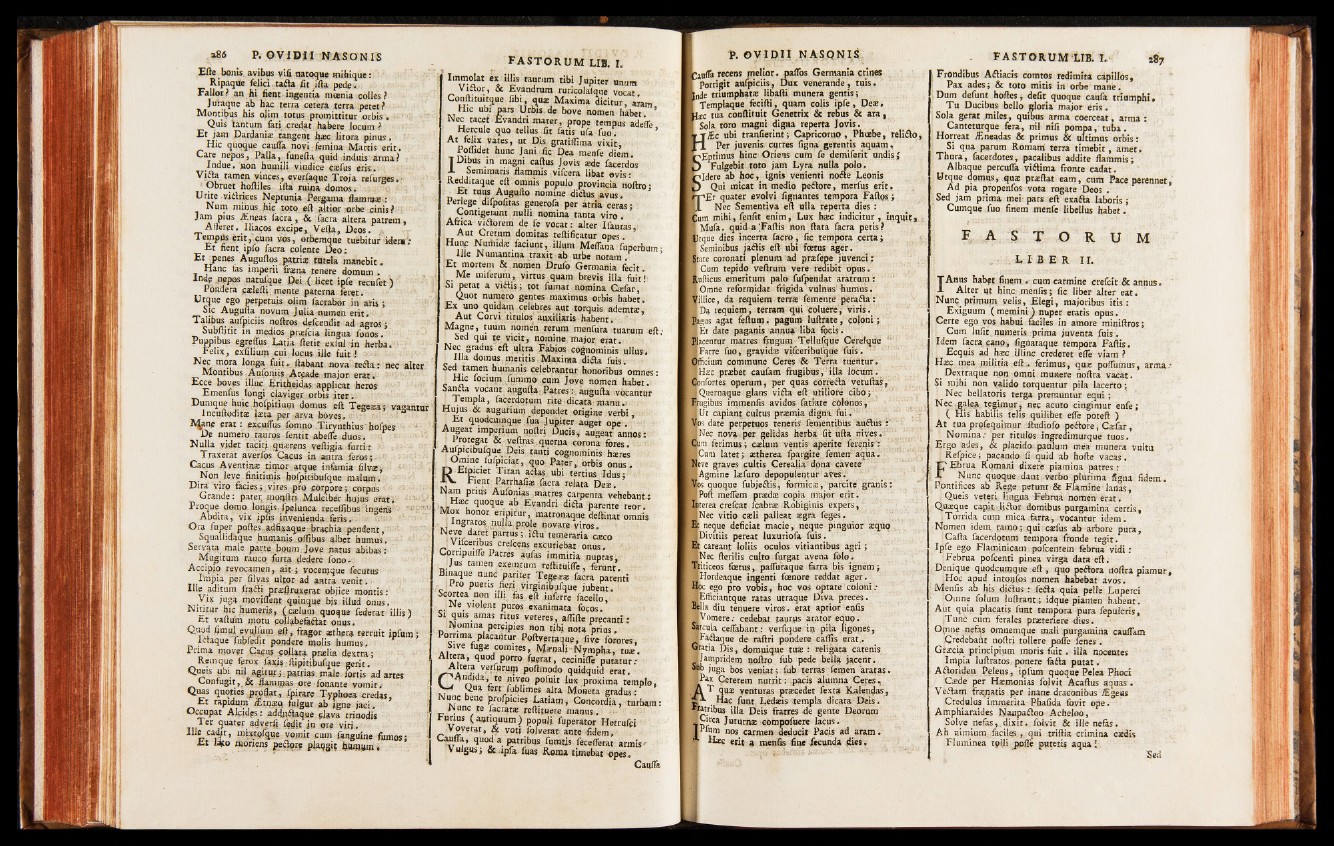 286 P. OVIDII NASONIS
Eſte bonis avibus viſi natoque mihique:
Ripaque felici tacta ſit iſta pede.
Fallor? an hi fient ingentia mœnia colles?
Juraque ab hac terra cetera terra petet?
Montibus his olim totus promittitur orbis.
Quis tantum fati credat habere locum?
Et jam Dardaniæ tangent hæc litora pinus.
Hic quoque cauſſa novi femina Martis erit.
Care nepos, Palla, funeſta quid induis arma?
Indue. non humili vindice cæſus eris.
Victa tamen vinces, everſaque Troja reſurges.
Obruet hoſtiles iſta ruina domos.
Urite victrices Neptunia Pergama flammæ:
Num minus hic toto eſt altior orbe cinis?
Jam pius Æneas ſacra, & ſacra altera patrem,
Afferet. Iliacos excipe, Veſta, Deos.
Tempus erit, cum vos, orbemque tuebitur idem:
Et fient ipſo ſacra colente Deo:
Et penes Auguſtos patriæ tutela manebit.
Hanc fas imperii fræna tenere domum.
Inde nepos natuſque Dei (licet ipſe recuſet)
Pondera cæleſti mente paterna feret.
Utque ego perpetuis olim ſacrabor in aris;
Sic Auguſta novum Julia numen erit.
Talibus auſpiciis noſtros deſcendit ad agros;
Subſtitit in medios præſcia lingua ſonos.
Puppibus egreſſus Latia ſtetit exſul in herba.
Felix, exſilium cui locus ille fuit!
Nec mora longa fuit. ſtabant nova tecta: nec alter
Montibus Auſoniis Arcade major erat.
Ecce boves illuc Eritheïdas applicat heros
Emenſus longi claviger orbis iter.
Dumque huic hoſpitium domus eſt Tegeæa; vagantur
Incuſtoditæ læta per arva boves.
Mane erat: excuſſus ſomno Tirynthius hoſpes
De numero tauros ſentit abeſſe duos.
Nulla videt taciti quærens veſtigia furti:
Traxerat averſos Cacus in antra feros;
Cacus Aventinæ timor atque infamia ſilvæ,
Non leve finitimis hoſpitibuſque malum.
Dira viro facies; vires pro corpore; corpus
Grande: pater monſtri Mulciber hujus erat.
Proque domo longis ſpelunca receſſibus ingens
Abdita, vix ipſis invenienda feris.
Ora ſuper poſtes adfixaque brachia pendent,
Squallidaque humanis oſſibus albet humus.
Servata male parte boum Jove natus abibas:
Mugitum rauco furta dedere ſono.
Accipio revocamen, ait; vocemque ſecutus
Impia per ſilvas ultor ad antra venit.
Ille aditum fracti præſtruxerat objice montis:
Vix juga moviſſent quinque bis illud onus.
Nititur hic humeris, (cælum quoque ſederat illis)
Et vaſtum motu collabefactat onus.
Quod ſimul evulſum eſt, fragor æthera terruit ipſum;
Ictaque ſubſedit pondere molis humus.
Prima movet Cacus collata prælia dextra;
Remque ferox ſaxis ſtipitibuſque gerit.
Queis ubi nil agitur; patrias male fortis ad artes
Confugit, & flammas ore ſonante vomit.
Quas quoties proflat, ſpirare Typhoea credas,
Et rapidum Ætnæo fulgur ab igne jaci.
Occupat Alcides: adductaque clava trinodis
Ter quater adverſi ſedit in ore viri.
Ille cadit, mixtoſque vomit cum ſanguine fumos;
Et lato moriens pectore plangit humum.
FASTORUM LIB. I.
Immolat ex illis taurum tibi Jupiter unum
Victor, & Evandrum ruricolaſque vocat.
Conſtituitque ſibi, quæ Maxima dicitur, aram,
Hic ubi pars Urbis de bove nomen habet.
Nec tacet Evandri mater, prope tempus adeſſe,
Hercule quo tellus ſit ſatis uſa ſuo.
At felix vates, ut Dis gratiſſima vixit,
Poſſidet hunc Jani ſic Dea menſe diem.
IDibus in magni caſtus Jovis æde ſacerdos
Semimaris flammis viſcera libat ovis:
Redditaque eſt omnis populo provincia noſtro;
Et tuus Auguſto nomine dictus avus.
Perlege diſpoſitas generoſa per atria ceras;
Contigerunt nulli nomina tanta viro.
Africa victorem de ſe vocat: alter Iſauras,
Aut Cretum domitas teſtificatur opes.
Hunc Numidæ faciunt, illum Meſſana ſuperbum;
Ille Numantina traxit ab urbe notam.
Et mortem & nomen Druſo Germania fecit.
Me miſerum, virtus quam brevis illa fuit!
Si petat a victis; tot ſumat nomina Cæſar,
Quot numero gentes maximus orbis habet.
Ex uno quidam celebres aut torquis ademtæ,
Aut Corvi titulos auxiliaris habent.
Magne, tuum nomen rerum menſura tuarum eſt:
Sed qui te vicit, nomine major erat.
Nec gradus eſt ultra Fabios cognominis ullus.
Illa domus meritis Maxima dicta ſuis.
Sed tamen humanis celebrantur honoribus omnes:
Hic ſocium ſummo cum Jove nomen habet.
Sancta vocant auguſta Patres: auguſta vocantur
Templa, ſacerdotum rite dicata manu.
Hujus & augurium dependet origine verbi,
Et quodcumque ſua Jupiter auget ope.
Augeat imperium noſtri Ducis, augeat annos:
Protegat & veſtras querna corona fores.
Auſpicibuſque Deis tanti cognominis hæres
Omine ſuſpiciat, quo Pater, orbis onus.
REſpiciet Titan actas ubi tertius Idus;
Fient Parrhaſiæ ſacra relata Deæ.
Nam prius Auſonias matres carpenta vehebant:
Hæc quoque ab Evandri dicta parente reor.
Mox honor eripitur, matronaque deſtinat omnis
Ingratos nulla prole novare viros.
Neve daret partus; ictu temeraria cæco
Viſceribus creſcens excutiebat onus.
Corripuiſſe Patres auſas immitia nuptas,
Jus tamen exemtum reſtituiſſe, ferunt.
Binaque nunc pariter Tegeææ ſacra parenti
Pro pueris fieri virginibuſque jubent.
Scortea non illi fas eſt inferre ſacello,
Ne violent puros exanimata focos.
Si quis amas ritus veteres, aſſiſte precanti:
Nomina percipies non tibi nota prius.
Porrima placantur Poſtvertaque, ſive ſorores,
Sive fugæ comites, Mænali Nympha, tuæ.
Altera, quod porro fuerat, ceciniſſe putatur:
Altera verſurum poſtmodo quidquid erat.
CAndida, te niveo poſuit lux proxima templo,
Qua fert ſublimes alta Moneta gradus:
Nunc bene proſpicies Latiam, Concordia, turbam:
Nunc te ſacratæ reſtituere manus.
Furius (antiquum) populi ſuperator Hetruſci
Voverat, & voti ſolverat ante fidem.
Cauſſa, quod a patribus ſumtis ſeceſſerat armis
Vulgus; & ipſa ſuas Roma timebat opes.
Cauſſa
P. OVIDII NASONIS
Cauſſa recens melior. paſſos Germania crines
Porrigit auſpiciis, Dux venerande, tuis.
Inde triumphatæ libaſti munera gentis;
Templaque feciſti, quam colis ipſe, Deæ.
Hæc tua conſtituit Genetrix & rebus & ara,
Sola toro magni digna reperta Jovis.
HÆc ubi tranſierint; Capricorno, Phœbe, relicto,
Per juvenis curres ſigna gerentis aquam.
SEptimus hinc Oriens cum ſe demiſerit undis;
Fulgebit toto jam Lyra nulla polo.
SIdere ab hoc, ignis venienti nocte Leonis
Qui micat in medio pectore, merſus erit.
TEr quater evolvi ſignantes tempora Faſtos;
Nec Sementiva eſt ulla reperta dies:
Cum mihi, ſenſit enim, Lux hæc indicitur, inquit,
Muſa. quid a Faſtis non ſtata ſacra petis?
Utque dies incerta ſacro, ſic tempora certa;
Seminibus jactis eſt ubi fœtus ager.
State coronati plenum ad præſepe juvenci:
Cum tepido veſtrum vere redibit opus.
Ruſticus emeritum palo ſuſpendat aratrum:
Omne reformidat frigida vulnus humus.
Villice, da requiem terræ ſemente peracta:
Da requiem, terram qui coluere, viris.
Pagus agat feſtum. pagum luſtrate, coloni;
Et date paganis annua liba focis.
Placentur matres frugum Telluſque Cereſque
Farre ſuo, gravidæ viſceribuſque ſuis.
Officium commune Ceres & Terra tuentur.
Hæc præbet cauſam frugibus, illa locum.
Conſortes operum, per quas correcta vetuſtas,
Quernaque glans victa eſt utiliore cibo;
Frugibus immenſis avidos ſatiate colonos,
Ut capiant cultus præmia digna ſui.
Vos date perpetuos teneris ſementibus auctus:
Nec nova per gelidas herba ſit uſta nives.
Cum ſerimus; cælum ventis aperite ſerenis:
Cum latet; ætherea ſpargite ſemen aqua.
Neve graves cultis Cerealia dona cavete
Agmine læſuro depopulentur aves.
Vos quoque ſubjectis, formicæ, parcite granis:
Poſt meſſem prædæ copia major erit.
Interea creſcat ſcabræ Robiginis expers,
Nec vitio cæli palleat ægra ſeges.
Et neque deficiat macie, neque pinguior æquo
Divitiis pereat luxurioſa ſuis.
Et careant loliis oculos vitiantibus agri;
Nec ſterilis culto ſurgat avena ſolo.
Triticeos fœtus, paſſuraque farra bis ignem;
Hordeaque ingenti fœnore reddat ager.
Hoc ego pro vobis, hoc vos optate coloni:
Efficiantque ratas utraque Diva preces.
Bella diu tenuere viros. erat aptior enſis
Vomere: cedebat taurus arator equo.
Sarcula ceſſabant: verſique in pila ligones,
Factaque de raſtri pondere caſſis erat.
Gratia Dis, domuique tuæ: religata catenis
Jampridem noſtro ſub pede bella jacent.
Sub juga bos veniat; ſub terras ſemen aratas.
Pax Cererem nutrit: pacis alumna Ceres.
AT quæ venturas præcedet ſexta Kalendas,
Hac ſunt Ledæis templa dicata Deis.
Fratribus illa Deis fratres de gente Deorum
Circa Juturnæ compoſuere lacus.
IPſum nos carmen deducit Pacis ad aram.
Hæc erit a menſis fine ſecunda dies.
FASTORUM LIB. I. 287
Frondibus Actiacis comtos redimita capillos,
Pax ades; & toto mitis in orbe mane.
Dum deſunt hoſtes, deſit quoque cauſa triumphi.
Tu Ducibus bello gloria major eris.
Sola gerat miles, quibus arma coerceat, arma:
Canteturque fera, nil niſi pompa, tuba.
Horreat Æneadas & primus & ultimus orbis:
Si qua parum Romam terra timebit, amet.
Thura, ſacerdotes, pacalibus addite flammis;
Albaque percuſſa victima fronte cadat.
Utque domus, quæ præſtat eam, cum Pace perennet,
Ad pia propenſos vota rogate Deos.
Sed jam prima mei pars eſt exacta laboris;
Cumque ſuo finem menſe libellus habet.
FASTORUM
LIBER II.
JAnus habet finem. cum carmine creſcit & annus.
Alter ut hinc menſis; ſic liber alter eat.
Nunc primum velis, Elegi, majoribus itis:
Exiguum (memini) nuper eratis opus.
Certe ego vos habui faciles in amore miniſtros;
Cum luſit numeris prima juventa ſuis.
Idem ſacra cano, ſignataque tempora Faſtis.
Ecquis ad hæc illinc crederet eſſe viam?
Hæc mea militia eſt. ferimus, quæ poſſumus, arma:
Dextraque non omni munere noſtra vacat.
Si mihi non valido torquentur pila lacerto;
Nec bellatoris terga premuntur equi;
Nec galea tegimur, nec acuto cingimur enſe;
(His habilis telis quilibet eſſe poteſt)
At tua proſequimur ſtudioſo pectore, Cæſar,
Nomina: per titulos ingredimurque tuos.
Ergo ades, & placido paulum mea munera vultu
Reſpice; pacando ſi quid ab hoſte vacas.
FEbrua Romani dixere piamina patres:
Nunc quoque dant verbo plurima ſigna fidem.
Pontifices ab Rege petunt & Flamine lanas,
Queis veteri lingua Februa nomen erat.
Quæque capit lictor domibus purgamina certis,
Torrida cum mica farra, vocantur idem.
Nomen idem ramo; qui cæſus ab arbore pura,
Caſta ſacerdotum tempora fronde tegit.
Ipſe ego Flaminicam poſcentem februa vidi:
Februa poſcenti pinea virga data eſt.
Denique quodcumque eſt, quo pectora noſtra piamur,
Hoc apud intonſos nomen habebat avos.
Menſis ab his dictus: ſecta quia pelle Luperci
Omne ſolum luſtrant; idque piamen habent.
Aut quia placatis ſunt tempora pura ſepulcris,
Tunc cum ferales præteriere dies.
Omne nefas omnemque mali purgamina cauſſam
Credebant noſtri tollere poſſe ſenes.
Græcia principium moris fuit. illa nocentes
Impia luſtratos ponere facta putat.
Actoriden Peleus, ipſum quoque Pelea Phoci
Cæde per Hæmonias ſolvit Acaſtus aquas.
Vectam frænatis per inane draconibus Ægeus
Credulus immerita Phaſida fovit ope.
Amphiaraides Naupactoo Acheloo,
Solve nefas, dixit. ſolvit & ille nefas.
Ah nimium faciles, qui triſtia crimina cædis
Fluminea tolli poſſe putetis aqua!
Sed